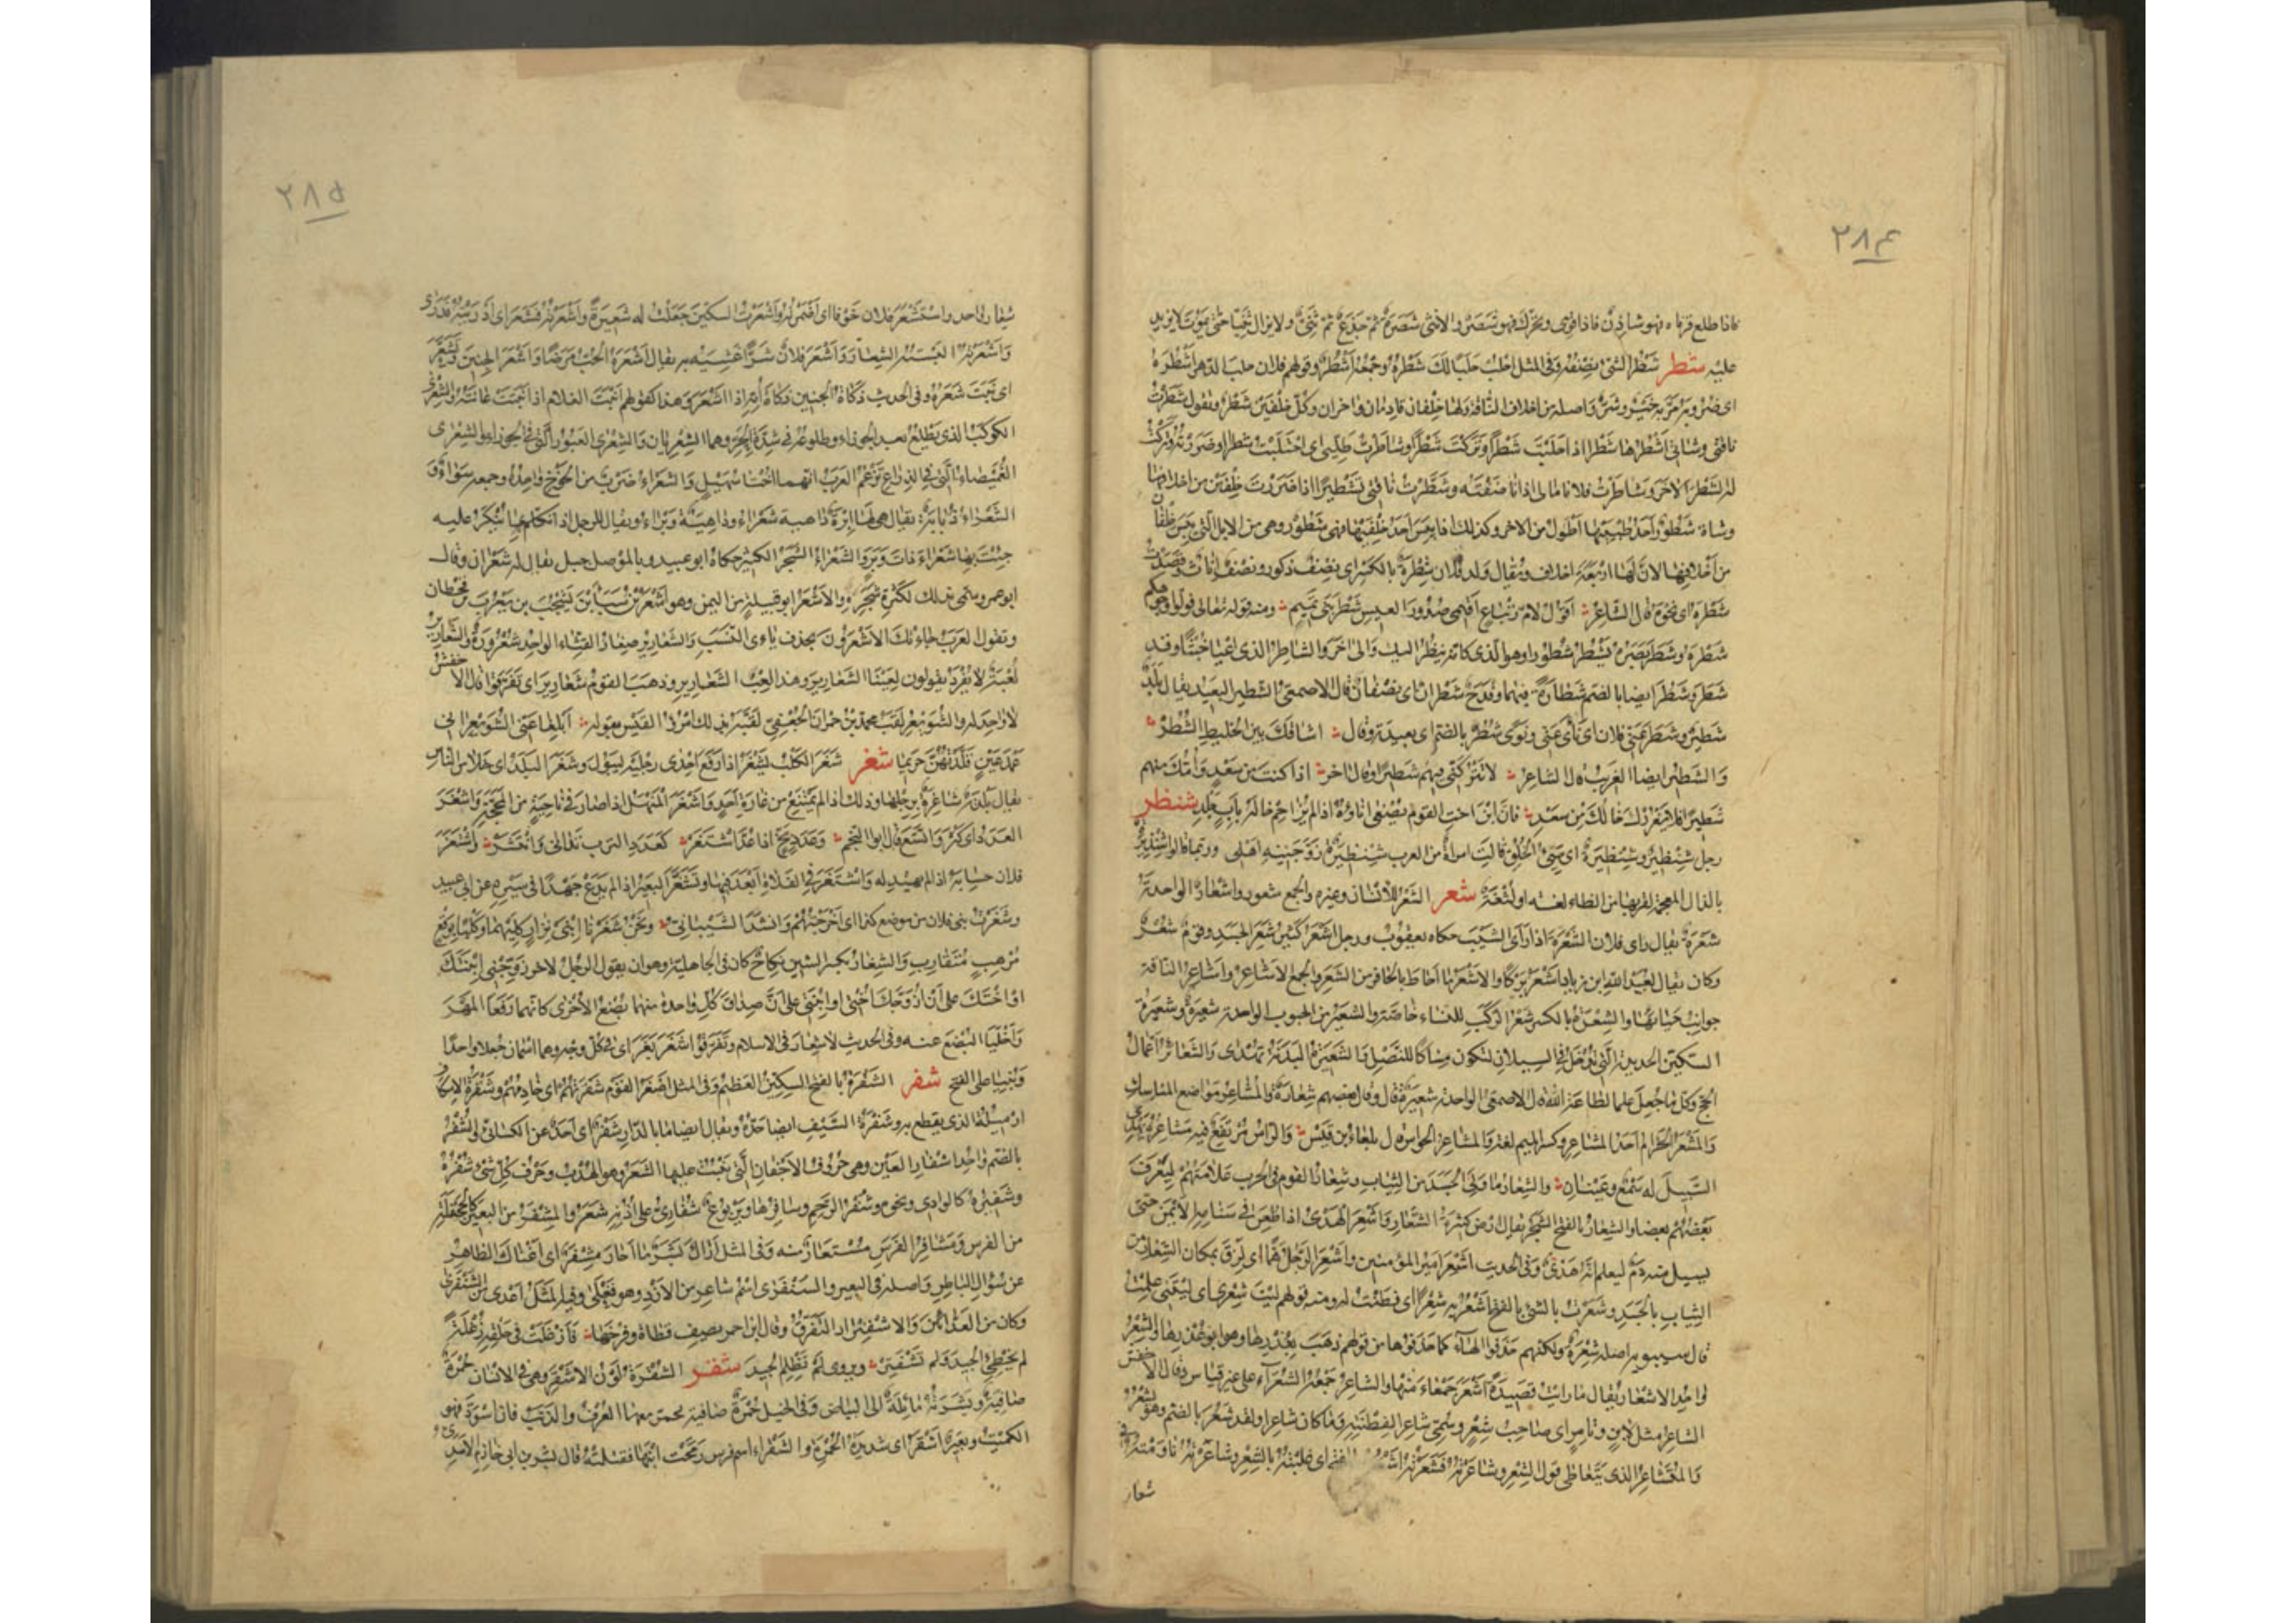 ٢٨٤
فاذا طلع قرناه فهو شادن فاذا قوى وتحرك فهو شصر والانثى شصرة ثم جذع ثم ثنى ولا يزال ثنيا حتى يموت لا يزيد
عليه شطر شطر الشئ نصفه وفى المثل احلب حلبا لك شطره وجمعه اشطر وقولهم فلان حلب الدهر اشطره
اى ضروبه مر به خير وشر واصله من اخلاف الناقة ولها خلفان قادمان واخران وكل خلفين شطر وتقول شطرت
ناقتى وشاتى اشطرها شطرا اذا حلبت شطرا وتركت شطرا وشاطرت طليى اى احتلبت شطرا او صررته وتركت
له الشطر الاخر وشاطرت فلانا مالى اذا ناصفته وشطرت ناقتى تشطيرا اذا صررت خلفين من اخلافها
وشاة شطور احد طبييها اطول من الاخر وكذلك اذا يبس احد خلفيها فهى شطور وهى من الابل التى يبس خلفان
من اخلافها لان لها اربعة اخلاف ويقال ولد فلان شطرة بالكسر اى نصف ذكور ونصف اناث وقصدت
شطره اى نحوه قال الشاعر اقول لام زنباع اقيمى صدور العيس شطر بنى تميم ومنه قوله تعالى فولوا وجوهكم
شطره وشطر بصره يشطر شطورا وهو الذى كانه ينظر اليك والى اخر والشاطر الذى اعيا خبثا وقد
شطر وشطر ايضا بالضم شطارة فيهما وقدح شطران اى نصفان قال الاصمعى الشطير البعيد يقال بلد
شطير وشطر عنى فلان اى نأى عنى ونوى شطر بالضم اى بعيدة وقال اشاقك بين الخليط الشطر
والشطير ايضا الغريب قال الشاعر لا تتركنى فيهم شطيرا وقال اخر اذا كنت من سعد وامك منهم
شطيرا فلا يغررك خالك من سعد فان ابن اخت القوم مصغى اناؤه اذا لم يزاحم خاله باب جلد شنظر
رجل شنظير وشنظيرة اى سيئ الخلق قالت امراة من العرب شنظيرة زوجنيه اهلى وربما قالوا شنذيرة
بالذال المعجمة لقربها من الظاء لغة او لثغة شعر الشعر للانسان وغيره والجمع شعور واشعار الواحدة
شعرة يقال راى فلان الشعرة اذا راى الشيب حكاه يعقوب ورجل اشعر كثير شعر الجسد وقوم شعر
وكان يقال لعبيد الله بن زياد اشعر بركا والاشعر ما احاط بالحافر من الشعر والجمع الاشاعر واشاعر الناقة
جوانب حيائها والشعرة بالكسر شعر الركب للنساء خاصة والشعير من الحبوب الواحدة شعيرة وشعيرة
السكين الحديدة التى تدخل فى السيلان لتكون مساكا للنصل والشعيرة البدنة تهدى والشعائر اعمال
الحج وكل ما جعل علما لطاعة الله قال الاصمعى الواحدة شعيرة قال وقال بعضهم شعارة والمشاعر مواضع المناسك
والمشعر الحرام احد المشاعر وكسر الميم لغة والمشاعر الحواس قال بلعاء بن قيس والراس مرتفع فيه مشاعره يهدى
السبيل له سمع وعينان والشعار ما ولى الجسد من الثياب وشعار القوم فى الحرب علامتهم ليعرف
بعضهم بعضا والشعار بالفتح الشجر يقال ارض كثيرة الشعار واشعر الهدى اذا طعن فى سنامه الايمن حتى
يسيل منه دم ليعلم انه هدى وفى الحديث اشعر امير المؤمنين واشعر الرجل هما اى لزق بمكان الشعار من
الثياب بالجسد وشعرت بالشئ بالفتح اشعر به شعرا اى فطنت له ومنه قولهم ليت شعرى اى ليتنى علمت
قال سيبويه اصله شعرة ولكنهم حذفوا الهاء كما حذفوها من قولهم ذهب بعذرها وهو ابو عذرها والشعر
واحد الاشعار يقال ما رايت قصيدة اشعر جمعاء منها والشاعر جمعه الشعراء على غير قياس وقال الاخفش
الشاعر مثل لابن وتامر اى صاحب شعر وسمى شاعرا لفطنته وما كان شاعرا ولقد شعر بالضم وهو يشعر
والمتشاعر الذى يتعاطى قول الشعر وشاعرته فشعرته اشعره بالفتح اى غلبته بالشعر وشاعرته ناومته فى
شعار
٢٨٥
شعار واحد واستشعر فلان خوفا اى اضمره واشعرت السكين جعلت له شعيرة واشعرته فشعر اى ادريته فدرى
واشعرته البسته الشعار واشعر فلان شرا غشيه به يقال اشعره الحب مرضا واشعر الجنين وتشعر
اى نبت شعره وفى الحديث ذكاة الجنين ذكاة امه اذا اشعر وهذا كقولهم انبت الغلام اذا نبتت عانته والشعرى
الكوكب الذى يطلع بعد الجوزاء وطلوعه فى شدة الحر وهما الشعريان والشعرى العبور التى فى الجوزاء والشعرى
الغميصاء التى فى الذراع تزعم العرب انهما اختا سهيل والشعراء ضرب من الخوخ واحده وجمعه سواء و
الشعراء ذبابة يقال هى لها ابرة داهية شعراء وداهية وبراء ويقال للرجل اذا تكلم بما ينكر عليه
جئت بها شعراء ذات وبر والشعراء الشجر الكثير حكاه ابو عبيد وبالموصل جبل يقال له شعران وقال
ابو عمرو سمى بذلك لكثرة شجره والاشعر ابو قبيلة من اليمن وهو اشعر بن سبأ بن يشجب بن يعرب بن قحطان
وتقول العرب جاءتك الاشعرون بحذف ياءى النسب والشعارير صغار القثاء الواحد شعرورة والشعارير
لعبة لا تفرد يقولون لعبنا الشعارير وهذا لعب الشعارير وذهب القوم شعارير اى تفرقوا قال الاخفش
لا واحد له والشويعر لقب محمد بن حمران الجعفى لقبه بذلك امرؤ القيس بقوله ابلغا عنى الشويعر انى
عمد عين قلدتهن حريما شغر شغر الكلب يشغر اذا رفع احدى رجليه ليبول وشغر البلد اى خلا من الناس
يقال بلدة شاغرة برجلها وذلك اذا لم تمتنع من غارة احد واشغر المنهل اذا صار فى ناحية من المحجة واشغر
العدد اى كثر واتسع قال ابو النجم وعدد بخ اذا عد اشتغر كعدد الترب تدانى وانتشر واشتغر
فلان حسابه اذا لم يهتد له واشتغر فى الفلاة ابعد فيها وتشغر البعير اذا لم يدع جهدا فى سيره عن ابى عبيد
وشغرت بنى فلان من موضع كذا اى اخرجتهم وانشد الشيبانى ونحن شغرنا ابنى نزار كليهما وكلبا بوقع
مرهب متقارب والشغار بكسر الشين نكاح كان فى الجاهلية وهو ان يقول الرجل لاخر زوجنى ابنتك
او اختك على ان ازوجك اختى او ابنتى على ان صداق كل واحدة منهما بضع الاخرى كانهما رفعا المهر
واخليا البضع عنه وفى الحديث لا شغار فى الاسلام وتفرقوا شغر بغر اى فى كل وجه وهما اسمان جعلا واحدا
وبنيا على الفتح شفر الشفرة بالفتح السكين العظيم وفى المثل اصغر القوم شفرتهم اى خادمهم وشفرة الاسكاف
ازميله الذى يقطع به وشفرة السيف ايضا حده ويقال ايضا ما بالدار شفر اى احد عن الكسائى والشفر
بالضم واحد اشفار العين وهى حروف الاجفان التى ينبت عليها الشعر وهو الهدب وحرف كل شئ شفره
وشفيره كالوادى ونحوه وشفر الرحم وشافرها ويربوع شفارى على اذنه شعر والمشفر من البعير كالجحفلة
من الفرس ومشافر الفرس مستعارة منه وفى المثل اراك بشر ما احار مشفر اى اغناك الظاهر
عن سؤال الباطن واصله فى البعير والشنفرى اسم شاعر من الازد وهو فنعلى وفى المثل اعدى من الشنفرى
وكان من العدائين والاشفنرار التفرق وقال ابن احمر يصف قطاة وفرخها فازغلت فى حلقه زغلة
لم تخطئ الجيد ولم تشفتر ويروى لم تظلم الجيد شقر الشقرة لون الاشقر وهى فى الانسان حمرة
صافية وبشرته مائلة الى البياض وفى الخيل حمرة صافية يحمر معها العرف والذنب فان اسودا فهو
الكميت وبعير اشقر اى شديد الحمرة والشقراء اسم فرس رمحت ابنها فقتلته قال بشر بن ابى خازم الاسدى